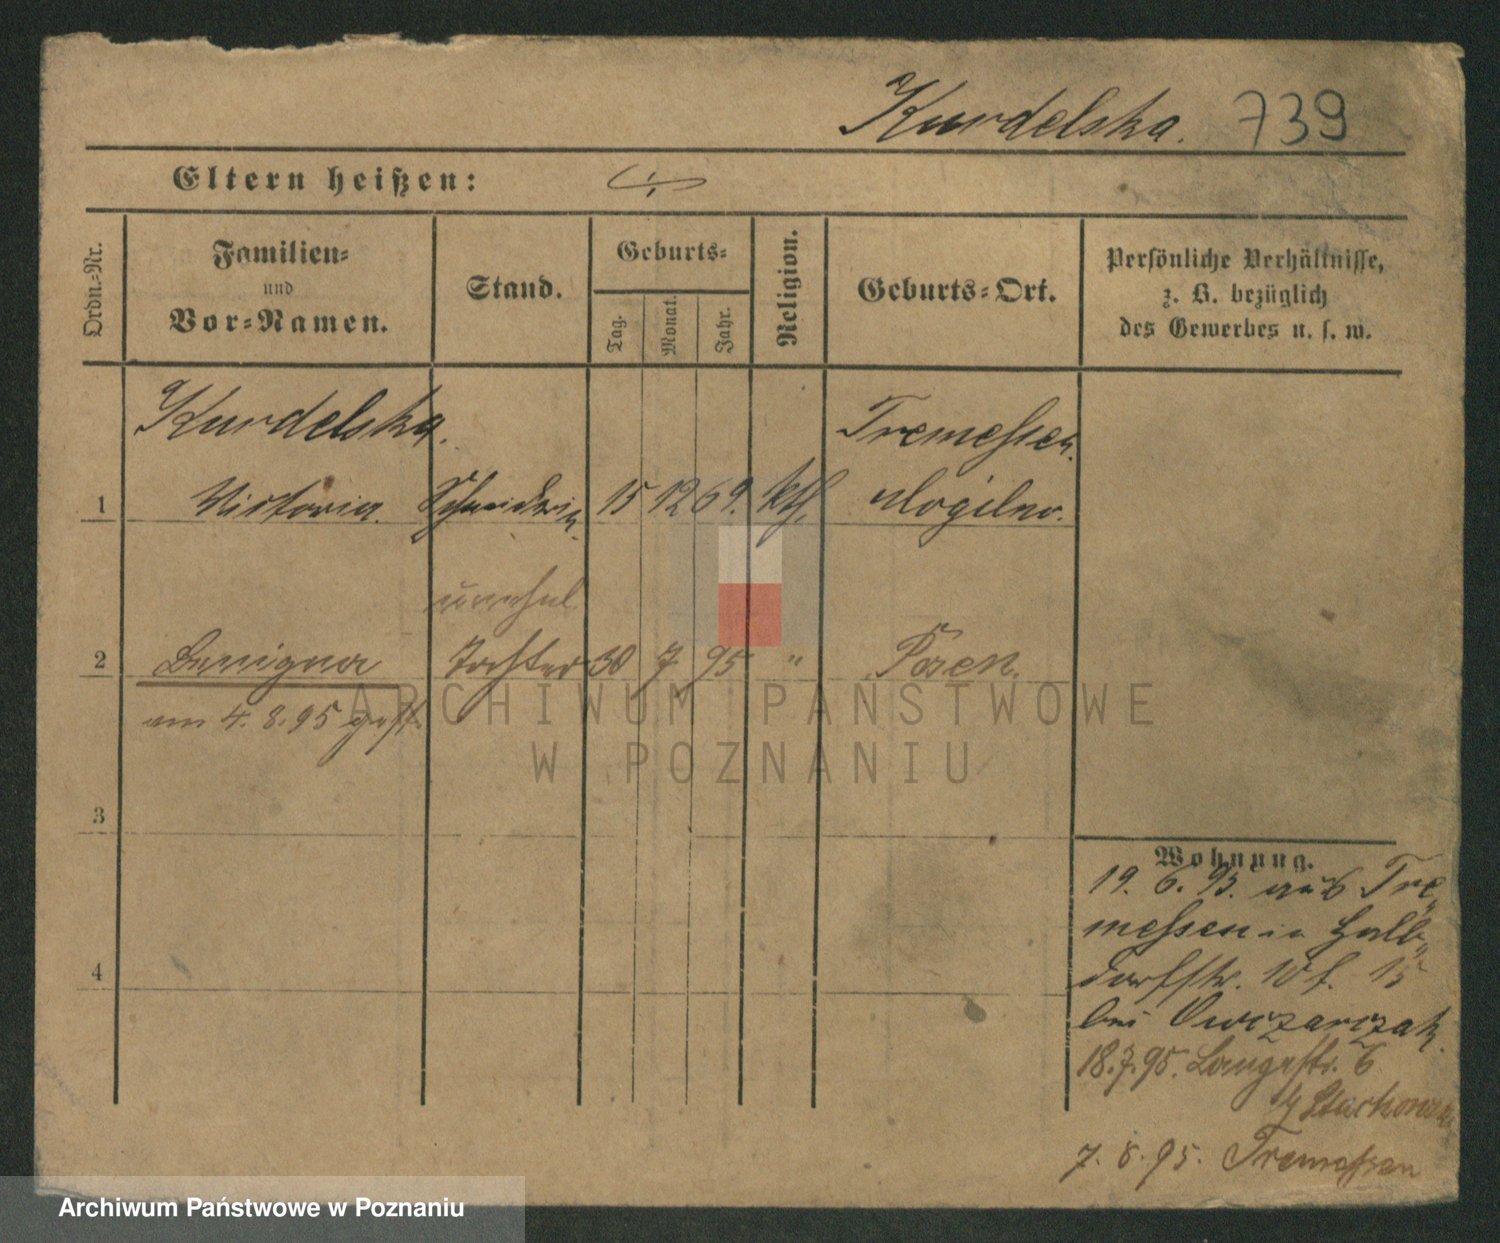 Kurdelska. 739
Eltern heißen:
Ordn.-Nr.
Familien-
und
Vor-Namen.
Stand.
Geburts-
Tag.
Monat.
Jahr.
Religion.
Geburts-Ort.
Persönliche Verhältnisse,
z. B. bezüglich
des Gewerbes u. s. w.
Kurdelska. Tremessen.
1 Victoria. Schneiderin. 15 12 69. kth. Mogilno.
unehel
2 Benigna Tochter 30 7 95 " Posen.
am 4.8.95 gest.
3
4
Wohnung.
19. 6. 95. aus Tre„
messen in Halb„
dorfstr. 15
bei Owczarczak.
18.7.95. Langestr. 6
7. 8. 95. Tremessen
ARCHIWUM PAŃSTWOWE
W POZNANIU
Archiwum Państwowe w Poznaniu